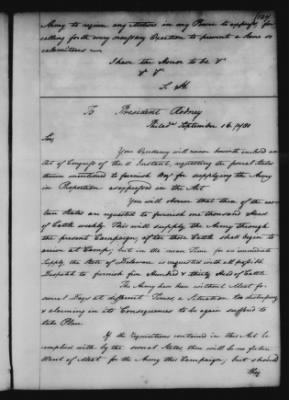 Army to require any Motions in any Power to
calling forth every necessary Operation to prevent a Scene so
calamitous —
I have the Honor to be &
& &
S. H.
To President Rodney
Philad.a September 16, 1781
Sir,
Your Excellency will receive herewith inclosed an
Act of Congress of the Instant, requesting the several States
therein mentioned to furnish Beef for supplying the Army
in Proportion as expressed in the Act
You will observe that three of the eas=
tern States are requested to furnish one thousand Head
of Cattle weekly. This will supply the Army through
the present Campaign, after these Cattle shall begin to
arrive at Camp, but in the mean Time for an immediate
Supply the State of Delaware is requested with all possible
Dispatch to furnish five Hundred & thirty Head of Cattle
The Army have been without Meat for
several Days at different Times, a Situation too distressing
& alarming in its Consequences to be again suffered to
take Place
If the Requisitions contained in this Act be
complied with by the several States, there will be no further
Want of Meat for the Army this Campaign; but should
they